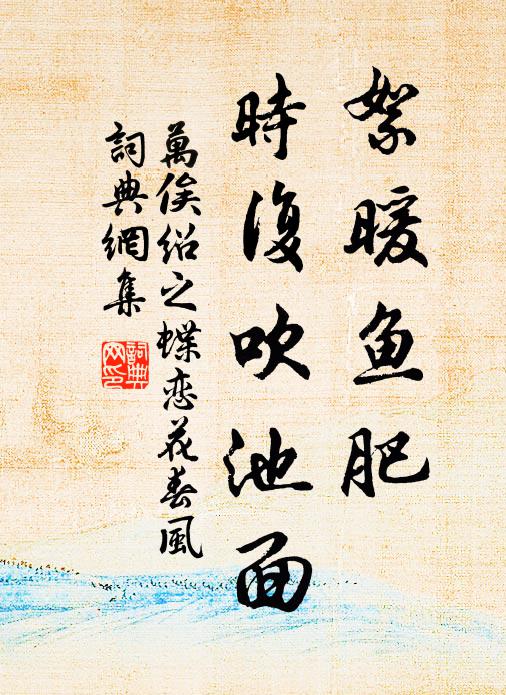 絮暖鱼肥
時復吹池面
萬俟紹之蝶恋花春風
詞典網集
詞典网印